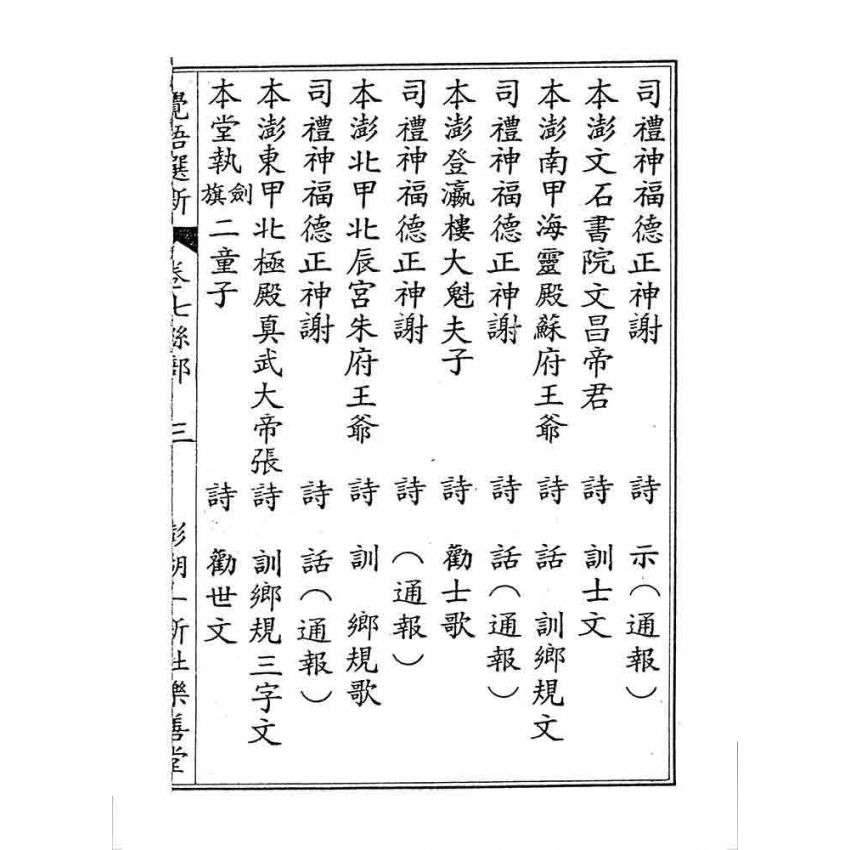 司禮神福德正神謝　詩　示（通報）
本澎文石書院文昌帝君　詩　訓士文
本澎南甲海靈殿蘇府王爺　詩　話　訓鄉規文
司禮神福德正神謝　詩　話（通報）
本澎登瀛樓大魁夫子　詩　勸士歌
司禮神福德正神謝　詩　（通報）
本澎北甲北辰宮朱府王爺　詩　訓　鄉規歌
司禮神福德正神謝　詩　話（通報）
本澎東甲北極殿真武大帝張　詩　訓鄉規三字文
本堂執劍旗二童子　詩　勸世文
覺悟選新　卷七絲部　三　澎湖一新社樂善堂